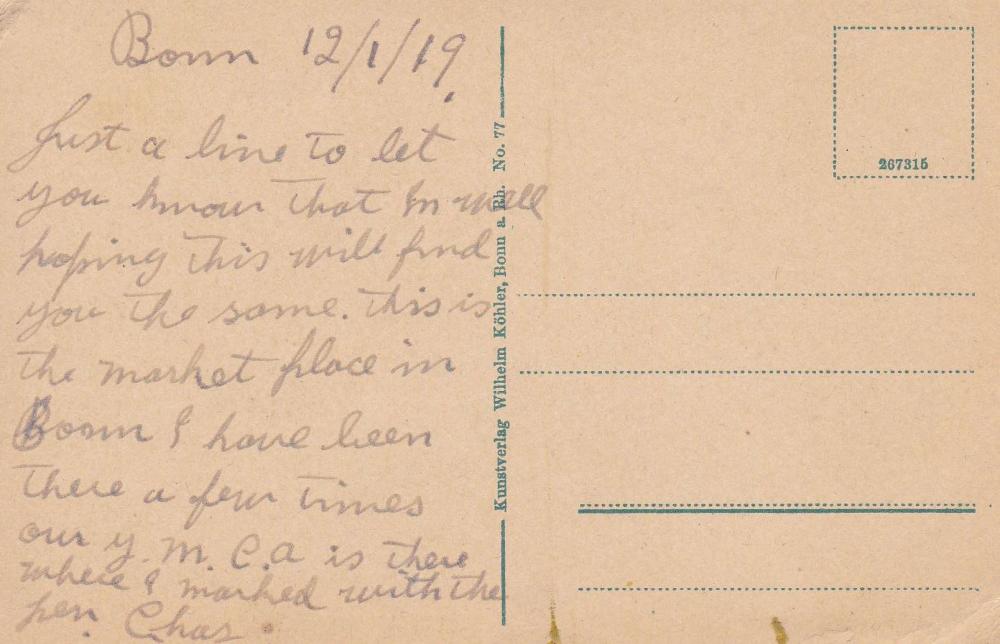 Bonn 12/1/19.
Just a line to let
you know that Im well
hoping this will find
you the same. this is
the market place in
Bonn I have been
there a few times
our y. m. C. a is there
where I marked with the
pen. Chas.
Kunstverlag Wilhelm Köhler, Bonn a. Rh. No. 77
267315